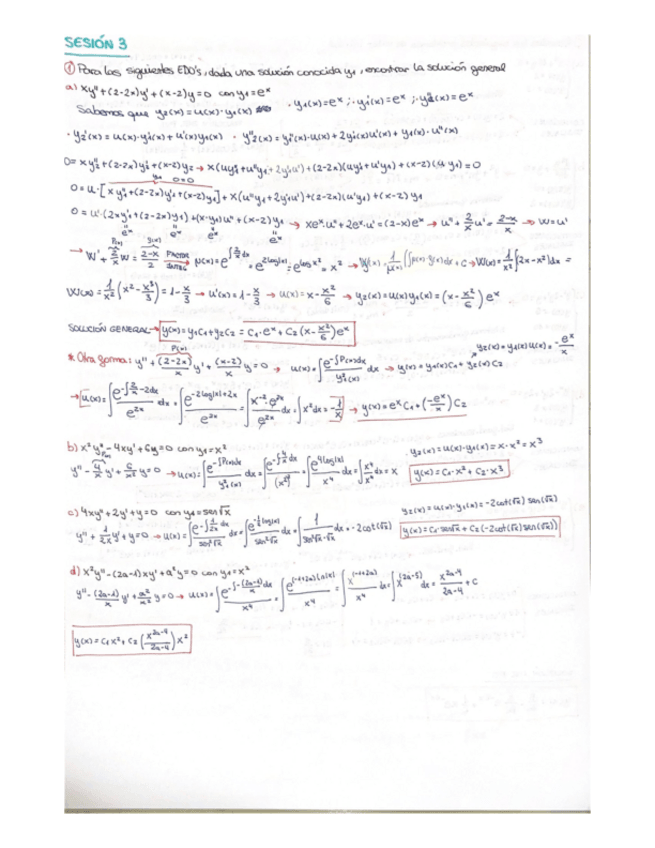 SESIÓN 3
① Para las siguientes EDO's, dada una solución conocida y₁, encontrar la solución general
a) xy''+(2-2x)y'+(x-2)y=0 con y₁=eˣ
Sabemos que y₂(x)=u(x)·y₁(x) · y₁(x)=eˣ ; y₁'(x)=eˣ ; y₁''(x)=eˣ
· y₂'(x)=u(x)·y₁'(x)+u'(x)y₁(x) · y₂''(x)=y₁''(x)·u(x)+2y₁'(x)u'(x)+y₁(x)·u''(x)
0=xy₂''+(2-2x)y₂'+(x-2)y₂ → x(uy₁''+u''y₁+2y₁'u')+(2-2x)(uy₁'+u'y₁)+(x-2)(u·y₁)=0
0=u·[xy₁''+(2-2x)y₁'+(x-2)y₁]+x(u''y₁+2y₁'u')+(2-2x)(u'y₁)+(x-2)y₁
→ xeˣu''+2eˣu'=(2-x)eˣ → u''+2/x u'=(2-x)/x → w=u'
→ w'+2/x w=(2-x)/2 FACTOR INTEG → μ(x)=e^∫2/x dx=e^2log|x|=e^log x²=x² → w(x)=1/x² ∫2x-x² dx =
w(x)=1/x²(x²-x³/3)=1-x/3 → u'(x)=1-x/3 → u(x)=x-x²/6 → y₂(x)=u(x)y₁(x)=(x-x²/6)eˣ
SOLUCIÓN GENERAL → y(x)=y₁C₁+y₂C₂=C₁·eˣ+C₂(x-x²/6)eˣ
* Otra forma: y''+(2-2x)/x y'+(x-2)/x y=0 → u(x)=∫e^-∫P(x)dx / y₁²(x) dx → y(x)=y₁(x)C₁+y₂(x)C₂
y₂(x)=y₁(x)u(x)=-eˣ/x
→ u(x)=∫e^-∫2/x-2dx / e^2x dx=∫e^-2log|x|+2x / e^2x=∫x⁻²·e^2x / e^2x dx=∫x²dx=-1/x → y(x)=eˣC₁+(-eˣ/x)C₂
b) x²y''-4xy'+6y=0 con y₁=x² · y₂(x)=u(x)·y₁(x)=x·x²=x³
y''-4/x y'+6/x² y=0 → u(x)=∫e^-∫P(x)dx / y₁²(x) dx=∫e^-∫4/x dx / (x²)² dx=∫e^4log|x| / x⁴ dx=∫x⁴/x⁴ dx=x y(x)=C₁·x²+C₂·x³
c) 4xy''+2y'+y=0 con y₁=sen√x y₂(x)=u(x)·y₁(x)=-2cot(√x)sen(√x)
y''+1/2x y'+y=0 → u(x)=∫e^-∫1/2x dx / sen²√x dx=∫e^-½log|x| / sen²√x dx=∫1/sen²√x·√x dx=-2cot(√x) y(x)=C₁·sen√x+C₂(-2cot(√x)sen(√x))
d) x²y''-(2a-1)xy'+a²y=0 con y₁=x²
y''-(2a-1)/x y'+a²/x² y=0 → u(x)=∫e^-∫-(2a-1)/x dx / x⁴=∫e^(-1+2a)ln|x| / x⁴=∫x^(-1+2a) / x⁴ dx=∫x^(2a-5) dx=x^(2a-4)/(2a-4)+C
y(x)=C₁x²+C₂(x^(2a-4)/(2a-4))x²